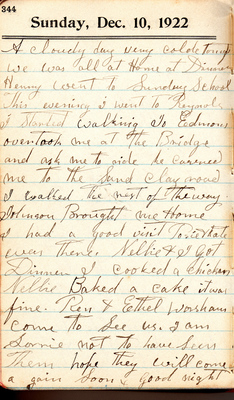 344
Sunday, Dec. 10, 1922
A cloudy day very cold
we was all at Home at Dinner
Henny went to Sunday School
This evening I went to
I Started walking Jo Edmons
overtook me at the Bridge
and ask me to ride he carried
me to the Sand Clay road
I walked the rest of the way.
Johnson Brought me Home
I had a good visit
was there. Nellie & I Got
Dinner I cooked a chicken
Nellie Baked a cake it was
fine. Ben & Ethel Worsham
come to see us. I am
Sorrie not to have seen
Them hope they will come
a gain soon. good night